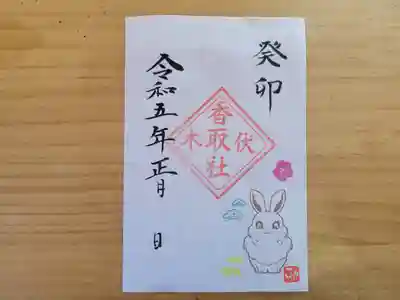 癸卯
香取社
伏木
令和五年正月 日